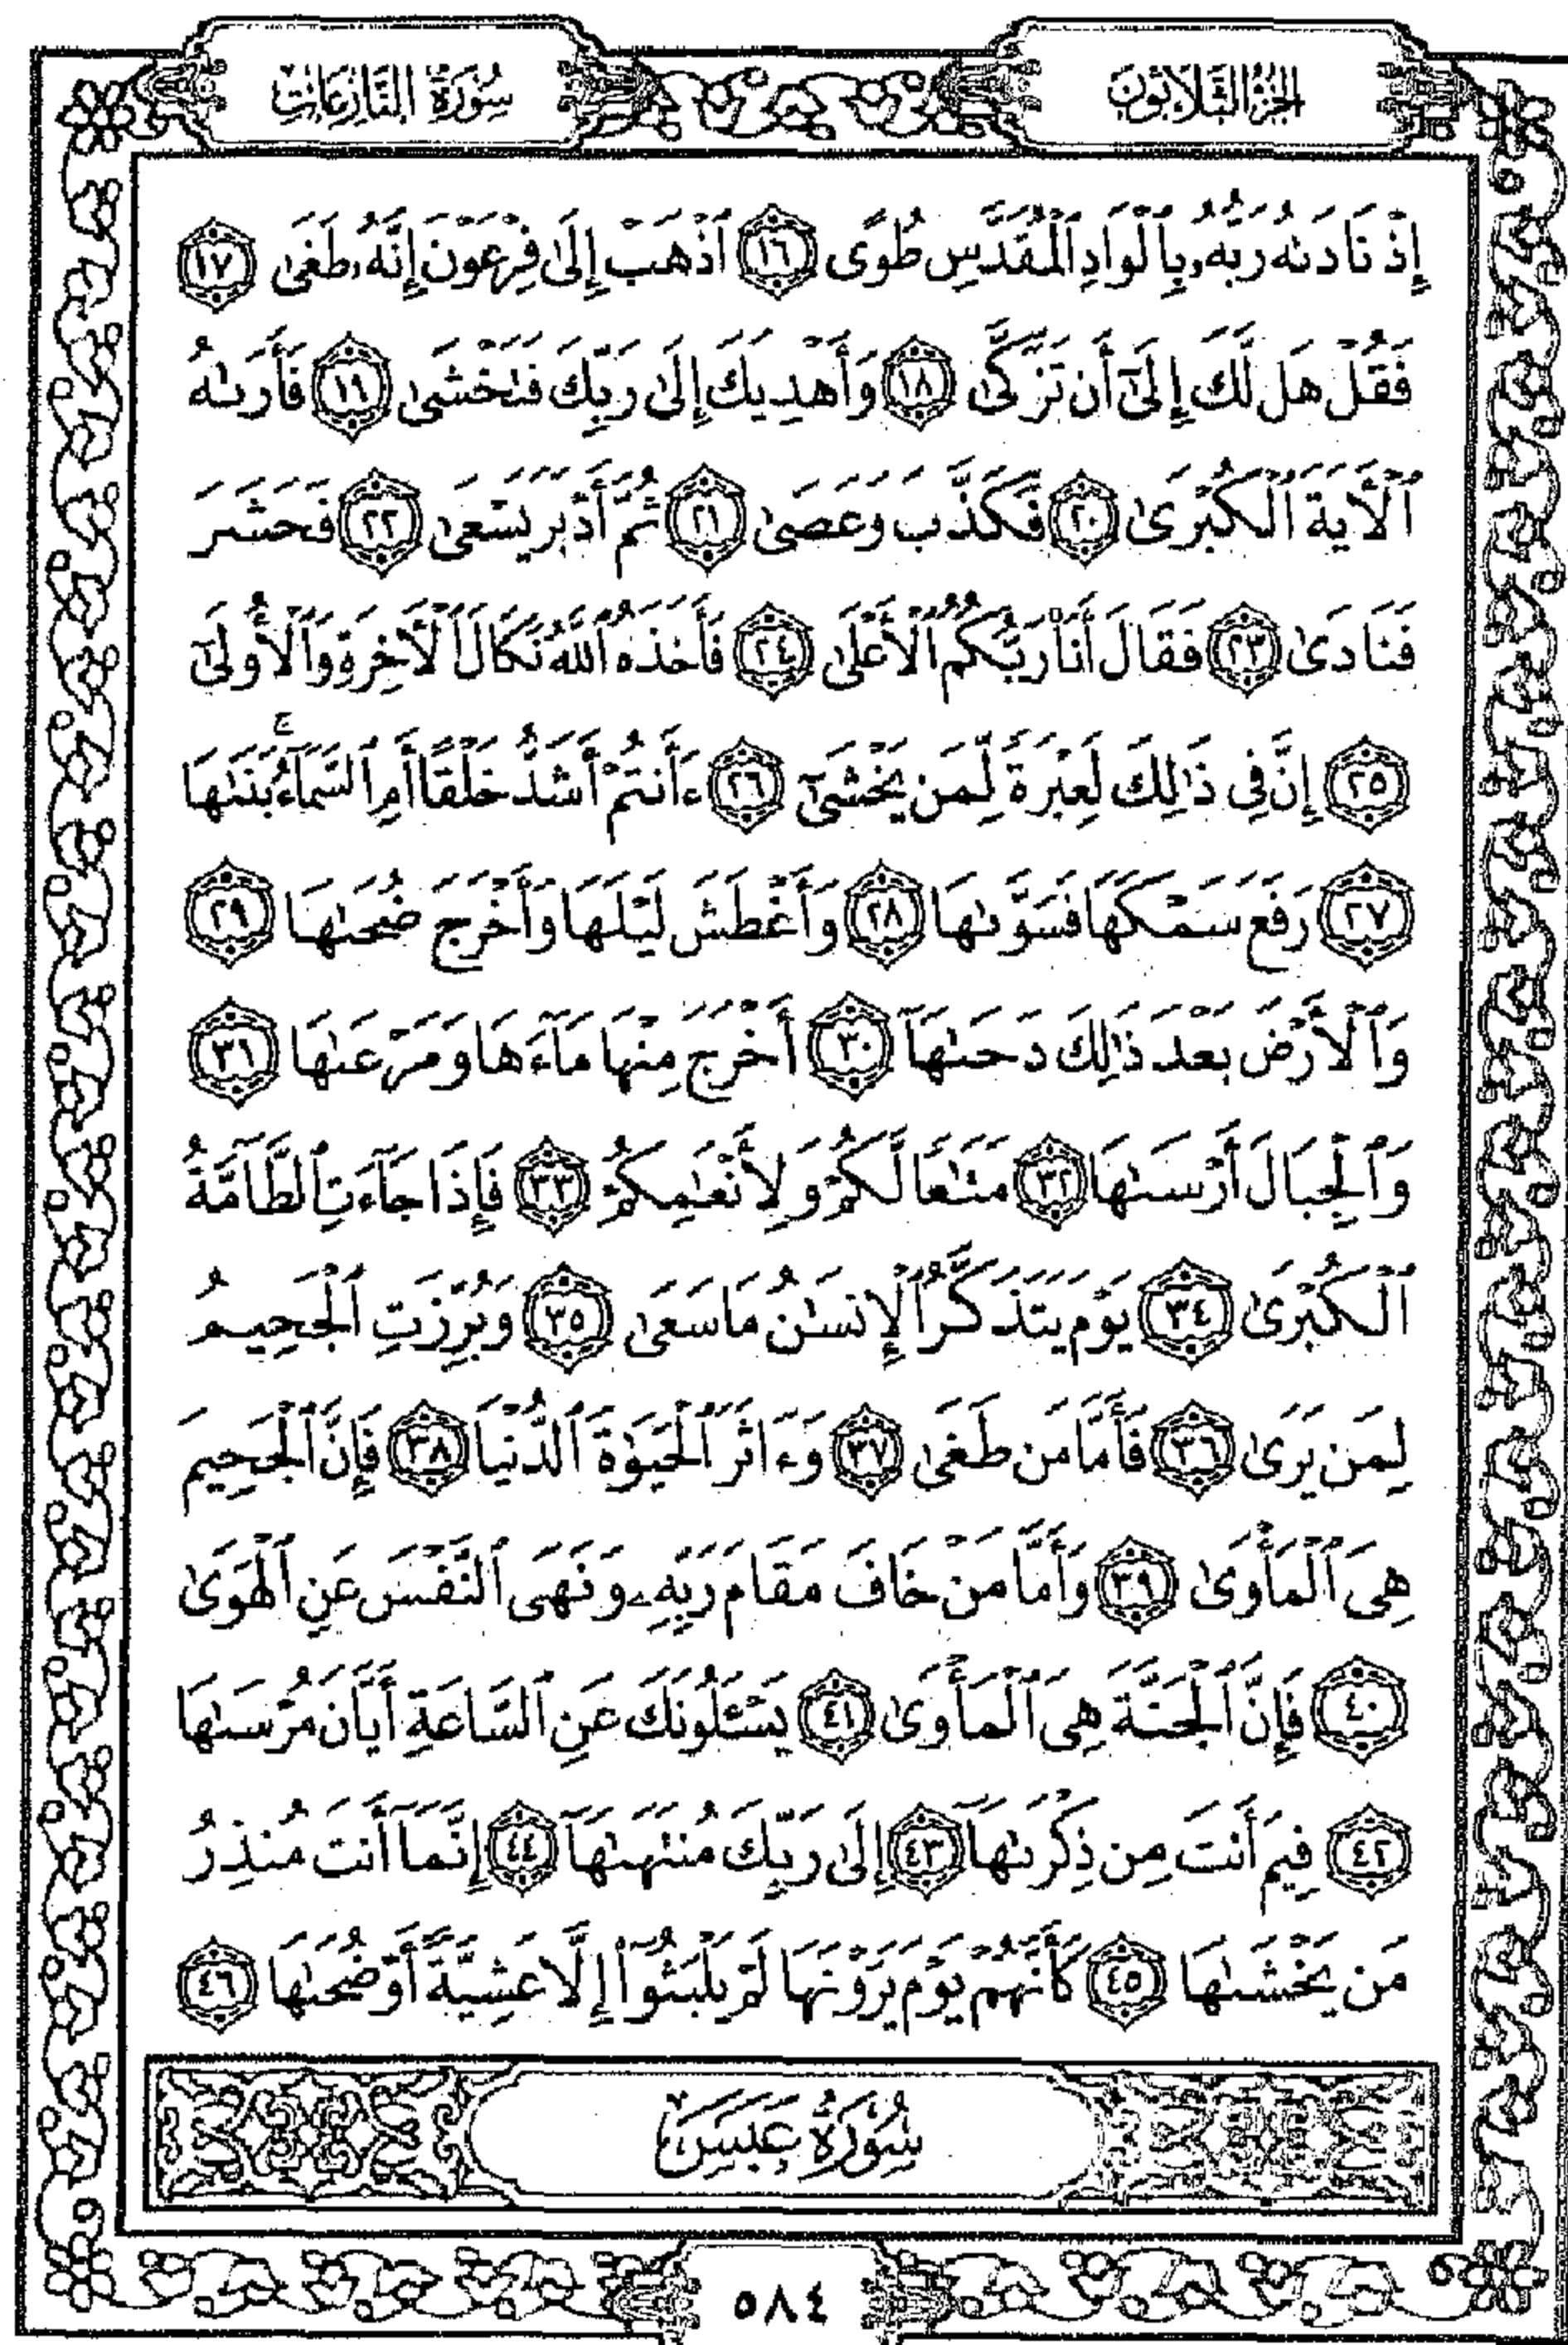 الجزء الثلاثون
سورة النازعات
إِذْ نَادَىٰهُ رَبُّهُۥ بِٱلْوَادِ ٱلْمُقَدَّسِ طُوًى ١٦ ٱذْهَبْ إِلَىٰ فِرْعَوْنَ إِنَّهُۥ طَغَىٰ ١٧
فَقُلْ هَل لَّكَ إِلَىٰٓ أَن تَزَكَّىٰ ١٨ وَأَهْدِيَكَ إِلَىٰ رَبِّكَ فَتَخْشَىٰ ١٩ فَأَرَىٰهُ
ٱلْـَٔايَةَ ٱلْكُبْرَىٰ ٢٠ فَكَذَّبَ وَعَصَىٰ ٢١ ثُمَّ أَدْبَرَ يَسْعَىٰ ٢٢ فَحَشَرَ
فَنَادَىٰ ٢٣ فَقَالَ أَنَا۠ رَبُّكُمُ ٱلْأَعْلَىٰ ٢٤ فَأَخَذَهُ ٱللَّهُ نَكَالَ ٱلْـَٔاخِرَةِ وَٱلْأُولَىٰٓ
٢٥ إِنَّ فِى ذَٰلِكَ لَعِبْرَةً لِّمَن يَخْشَىٰٓ ٢٦ ءَأَنتُمْ أَشَدُّ خَلْقًا أَمِ ٱلسَّمَآءُ ۚ بَنَىٰهَا
٢٧ رَفَعَ سَمْكَهَا فَسَوَّىٰهَا ٢٨ وَأَغْطَشَ لَيْلَهَا وَأَخْرَجَ ضُحَىٰهَا ٢٩
وَٱلْأَرْضَ بَعْدَ ذَٰلِكَ دَحَىٰهَآ ٣٠ أَخْرَجَ مِنْهَا مَآءَهَا وَمَرْعَىٰهَا ٣١
وَٱلْجِبَالَ أَرْسَىٰهَا ٣٢ مَتَٰعًا لَّكُمْ وَلِأَنْعَٰمِكُمْ ٣٣ فَإِذَا جَآءَتِ ٱلطَّآمَّةُ
ٱلْكُبْرَىٰ ٣٤ يَوْمَ يَتَذَكَّرُ ٱلْإِنسَٰنُ مَا سَعَىٰ ٣٥ وَبُرِّزَتِ ٱلْجَحِيمُ
لِمَن يَرَىٰ ٣٦ فَأَمَّا مَن طَغَىٰ ٣٧ وَءَاثَرَ ٱلْحَيَوٰةَ ٱلدُّنْيَا ٣٨ فَإِنَّ ٱلْجَحِيمَ
هِىَ ٱلْمَأْوَىٰ ٣٩ وَأَمَّا مَنْ خَافَ مَقَامَ رَبِّهِۦ وَنَهَى ٱلنَّفْسَ عَنِ ٱلْهَوَىٰ
٤٠ فَإِنَّ ٱلْجَنَّةَ هِىَ ٱلْمَأْوَىٰ ٤١ يَسْـَٔلُونَكَ عَنِ ٱلسَّاعَةِ أَيَّانَ مُرْسَىٰهَا
٤٢ فِيمَ أَنتَ مِن ذِكْرَىٰهَآ ٤٣ إِلَىٰ رَبِّكَ مُنتَهَىٰهَآ ٤٤ إِنَّمَآ أَنتَ مُنذِرُ
مَن يَخْشَىٰهَا ٤٥ كَأَنَّهُمْ يَوْمَ يَرَوْنَهَا لَمْ يَلْبَثُوٓا۟ إِلَّا عَشِيَّةً أَوْ ضُحَىٰهَا ٤٦
سُورَةُ عَبَسَ
٥٨٤